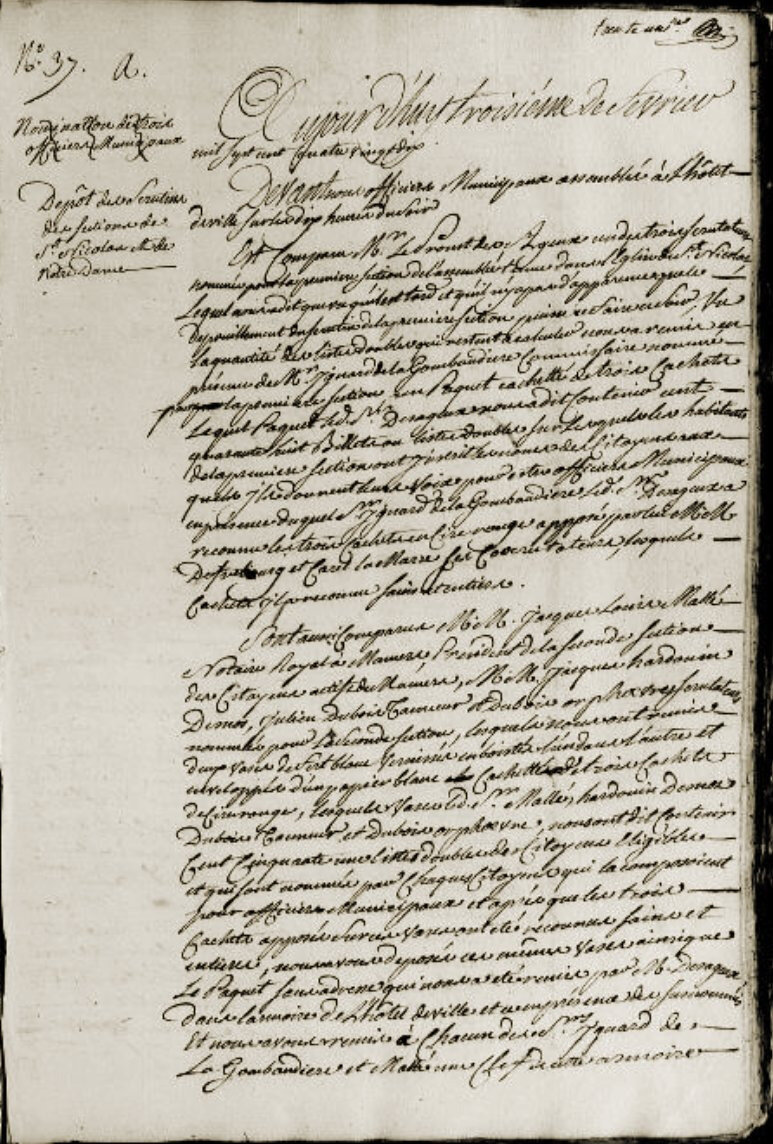 trente un.e
N.o 37. A.
Nomination de trois
officiers Municipaux
Depôt des Scrutins
des sections de
S.t Nicolas et de
Notre Dame
Aujourd'huy troisiéme de fevrier
mil sept cent quatre vingt dix
Devant nous officiers Municipaux assemblés à l'hôtel
de ville sur les dix heures du soir
Est Comparu M.r Le Proust des Ageux un des trois scrutateurs
nommés pour la premiere section de l'assemblée tenue dans l'Eglise de S.t Nicolas
Lequel nous a dit que vu qu'il est tard et qu'il n'y a pas d'apparence que le
Depouillement du scrutin de la premiere section puisse se faire ce soir, Vu
la quantité des listes doubles qui restent à calculer nous a remis en
présence de M.r Yzuard de la Gombaudiere Commissaire nommé
par la premiere section un Paquet cacheté de trois Cachets
Lequel Paquet led. S.r Desageux nous a dit contenir cent
quarante huit Billets ou listes doubles sur lesquelles les habitants
de la premiere section ont inscrit les noms des Citoyens aux
quels ils donnent leurs voix pour être officiers Municipaux
en présence duquel S.r Yzuard de la Gombaudiere led. S.r Desageux a
reconnu les trois Cachets en Cire rouge apposés par lui et MM
et Caret la Marre ses Coscrutateurs, lesquels
Cachets il a reconnu sains et entiers.
Sont aussi Comparus MM. Jacques Louis Mallé
Notaire Royal à Mamers President de la seconde section
des Citoyens actifs de Mamers, MM. Jacques hardouin
Demos, Julien Dubois Tanneur et Dubois orphevre scrutateurs
nommés pour la seconde section, lesquels nous ont remis
deux vases de fert blanc vernissés emboistés l'un dans l'autre et
enveloppés d'un papier blanc Cachettés de trois Cachets
de Cire rouge, lesquels vases led. S.r Mallé, hardouin Demos
Dubois Tanneur et Dubois orphevre, nous ont dit contenir
Cent Cinquante une listes doubles de Citoyens Eligibles
et qui sont nommés par Chaques Citoyens qui la composoient
pour officiers Municipaux et après que les trois
Cachets apposés sur ces vases ont été reconnus sains et
entiers, nous avons deposé ces mêmes vases ainsi que
Le Paquet sous adresse qui nous a été remis par M. Desageux
dans l'armoire de l'hôtel de ville et en présence des susnommés
Et nous avons remis à Chacun des S.rs Yzuard de
La Gombaudiere et Mallé une Clef de cette armoire